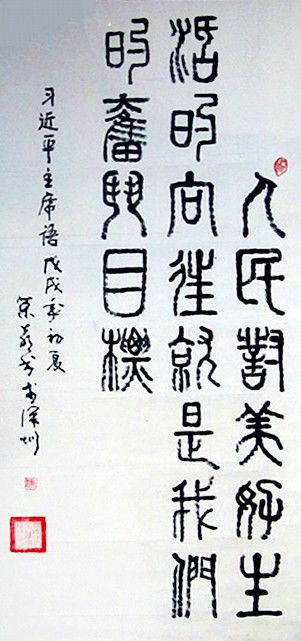 人民對美好生
活的向往就是我們
的奮鬥目標
习近平主席语戊戌年初夏
书深圳